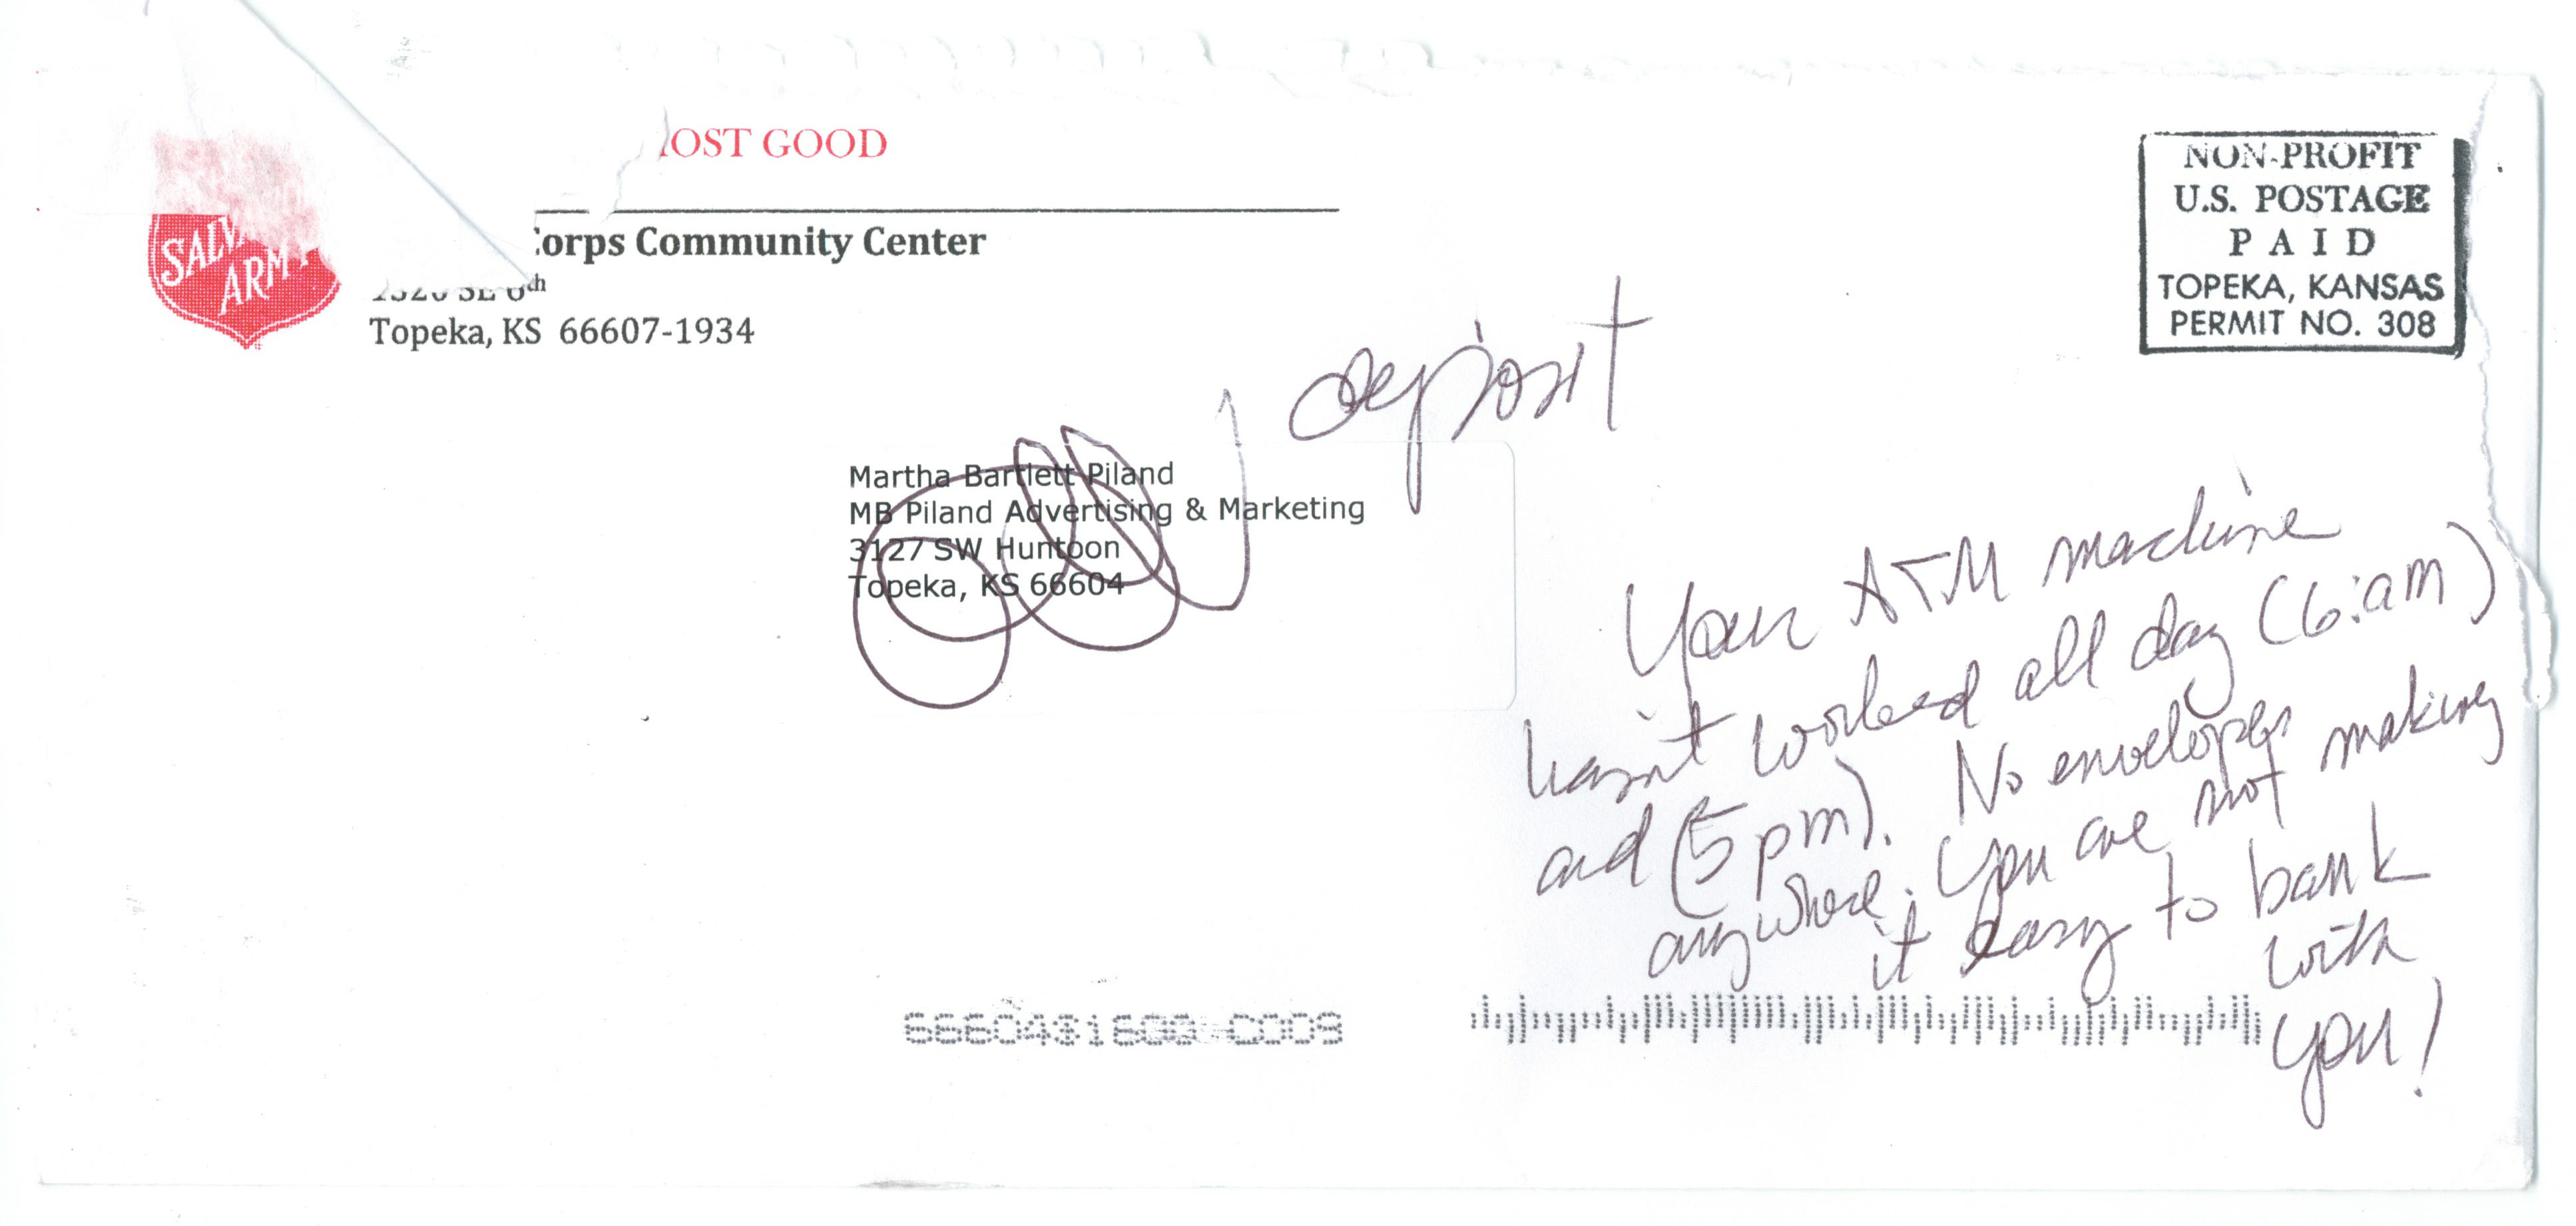 OST GOOD
orps Community Center
SALV
ARMY
1320 SE 6th
Topeka, KS 66607-1934
NON-PROFIT
U.S. POSTAGE
PAID
TOPEKA, KANSAS
PERMIT NO. 308
deposit
Martha Bartlett Piland
MB Piland Advertising & Marketing
3127 SW Huntoon
Topeka, KS 66604
Your ATM machine
hasn't worked all day (6:am)
and (5pm). No envelopes
anywhere. You are not making
it easy to bank
with
you!